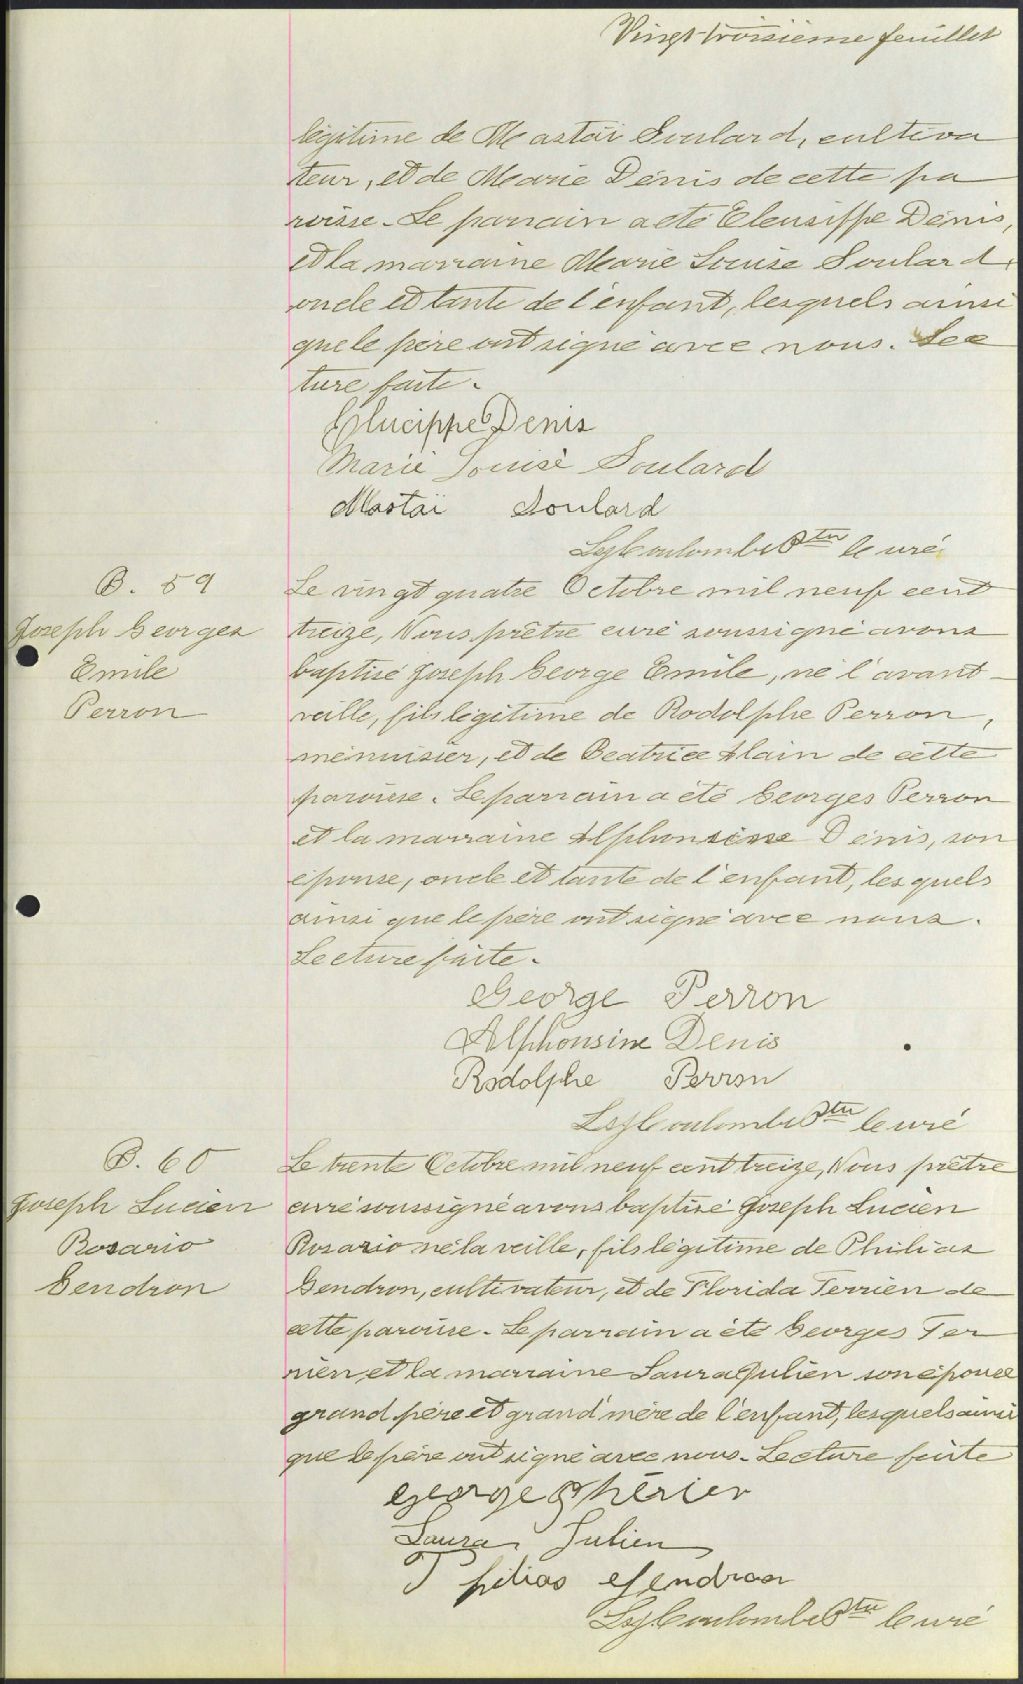 Vingt-troisième feuillet
légitime de Mastaï Soulard, cultiva
teur, et de Marie Dénis de cette pa
roisse. Le parrain a été Eleusippe Dénis,
et la marraine Marie Louise Soulard,
oncle et tante de l'enfant, lesquels ainsi
que le père ont signé avec nous. Lec
ture faite.
Elucippe Denis
Marie Louise Soulard
Mastaï Soulard
Coulombe Ptre curé
B. 59
Joseph Georges
Emile
Perron
Le vingt quatre Octobre mil neuf cent
treize, Nous, prêtre curé soussigné avons
baptisé Joseph George Emile, né l'avant-
veille, fils légitime de Rodolphe Perron,
ménuisier, et de Beatrice Alain de cette
paroisse. Le parrain a été Georges Perron
et la marraine Alphonsine Dénis, son
épouse, oncle et tante de l'enfant, lesquels
ainsi que le père ont signé avec nous.
Lecture faite.
George Perron
Alphonsine Denis
Rodolphe Perron
Coulombe Ptre curé
B. 60
Joseph Lucien
Rosario
Gendron
Le trente Octobre mil neuf cent treize, Nous prêtre
curé soussigné avons baptisé Joseph Lucien
Rosario né la veille, fils légitime de Philias
Gendron, cultivateur, et de Florida Terrien de
cette paroisse. Le parrain a été Georges Ter
rien, et la marraine Laura Julien son épouse
grand père et grand'mère de l'enfant, lesquels ainsi
que le père ont signé avec nous. Lecture faite
George Thérien
Laura Julien
Philias Gendron
Coulombe Ptre curé